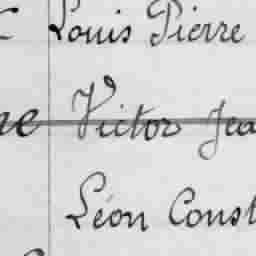 Louis Pierre
Victor Jea
Léon Const